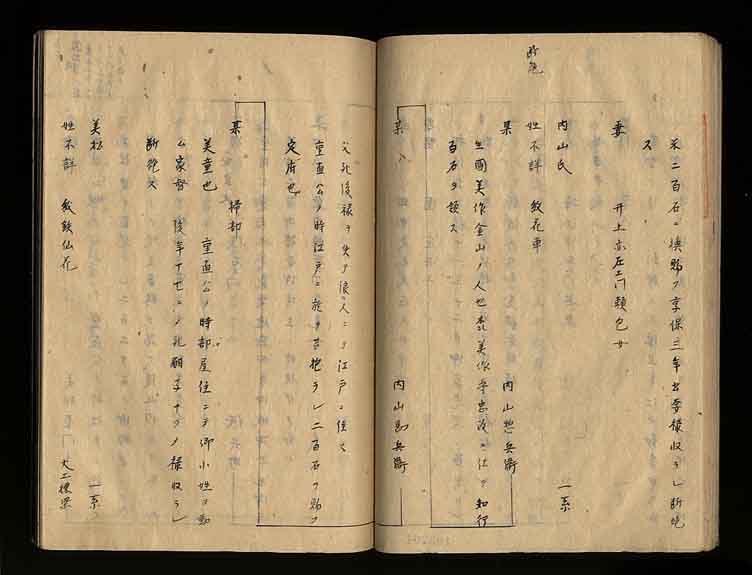 断絶
米二百石ニ換賜フ享保三年出奔禄収ラレ断絶
ス
妻 井上 左エ門頼包女
内山氏 一系
姓不詳 紋花車
某 内山惣兵衛
生國美作金山ノ人也 美作守忠政ニ仕ヘ知行
百石ヲ領ス
某 内山 兵衛
父死後禄ヲ失ヒ浪人ニテ江戸ニ住ス
重直公ノ時江戸ニ於テ召抱ラレ二百石ヲ賜フ
定府也
某 掃部
美童也 重直公ノ時部屋住ニテ御小姓ヲ勤
公家督 後年十七ニテ死嗣子ナクノ禄収ラレ
断絶ス
美松 一系
姓不詳 紋鉄仙花